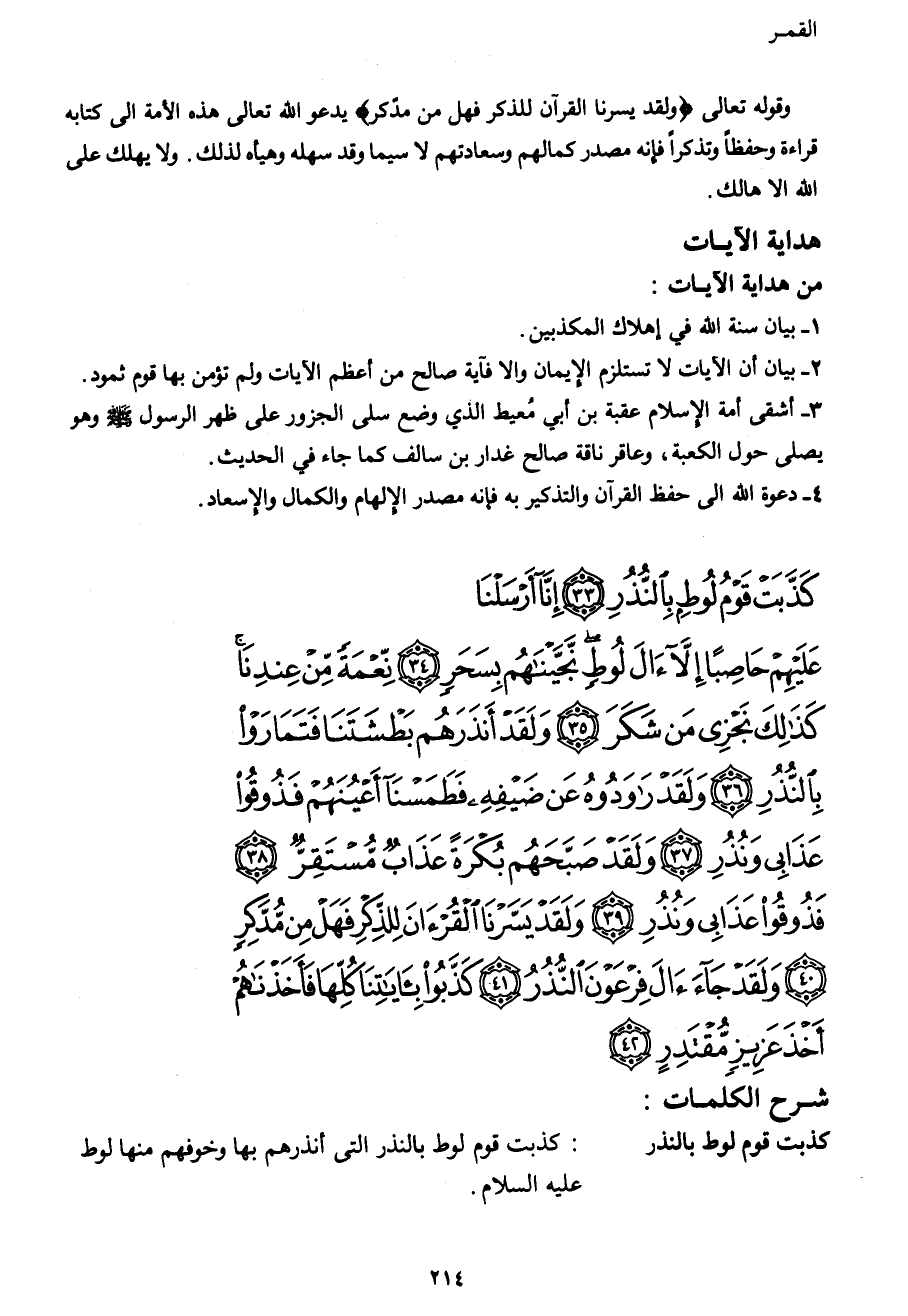 القمـر
وقوله تعالى ﴿ولقد يسرنا القرآن للذكر فهل من مدّكر﴾ يدعو الله تعالى هذه الأمة الى كتابه
قراءة وحفظاً وتذكراً فإنه مصدر كمالهم وسعادتهم لا سيما وقد سهله وهيأه لذلك. ولا يهلك على
الله الا هالك.
هداية الآيـات
من هداية الآيـات :
١ـ بيان سنة الله في إهلاك المكذبين.
٢ـ بيان أن الآيات لا تستلزم الإيمان والا فآية صالح من أعظم الآيات ولم تؤمن بها قوم ثمود.
٣ـ أشقى أمة الإسلام عقبة بن أبي مُعيط الذي وضع سلى الجزور على ظهر الرسول ﷺ وهو
يصلى حول الكعبة، وعاقر ناقة صالح غدار بن سالف كما جاء في الحديث.
٤ـ دعوة الله الى حفظ القرآن والتذكير به فإنه مصدر الإلهام والكمال والإسعاد.
كَذَّبَتْ قَوْمُ لُوطٍۭ بِٱلنُّذُرِ ٣٣ إِنَّآ أَرْسَلْنَا
عَلَيْهِمْ حَاصِبًا إِلَّآ ءَالَ لُوطٍۖ نَّجَّيْنَٰهُم بِسَحَرٍ ٣٤ نِّعْمَةً مِّنْ عِندِنَاۚ
كَذَٰلِكَ نَجْزِى مَن شَكَرَ ٣٥ وَلَقَدْ أَنذَرَهُم بَطْشَتَنَا فَتَمَارَوْا۟
بِٱلنُّذُرِ ٣٦ وَلَقَدْ رَٰوَدُوهُ عَن ضَيْفِهِۦ فَطَمَسْنَآ أَعْيُنَهُمْ فَذُوقُوا۟
عَذَابِى وَنُذُرِ ٣٧ وَلَقَدْ صَبَّحَهُم بُكْرَةً عَذَابٌ مُّسْتَقِرٌّ ٣٨
فَذُوقُوا۟ عَذَابِى وَنُذُرِ ٣٩ وَلَقَدْ يَسَّرْنَا ٱلْقُرْءَانَ لِلذِّكْرِ فَهَلْ مِن مُّدَّكِرٍ
٤٠ وَلَقَدْ جَآءَ ءَالَ فِرْعَوْنَ ٱلنُّذُرُ ٤١ كَذَّبُوا۟ بِـَٔايَٰتِنَا كُلِّهَا فَأَخَذْنَٰهُمْ
أَخْذَ عَزِيزٍ مُّقْتَدِرٍ ٤٢
شـرح الكلمـات :
كذبت قوم لوط بالنذر : كذبت قوم لوط بالنذر التى أنذرهم بها وخوفهم منها لوط
عليه السلام.
٢١٤